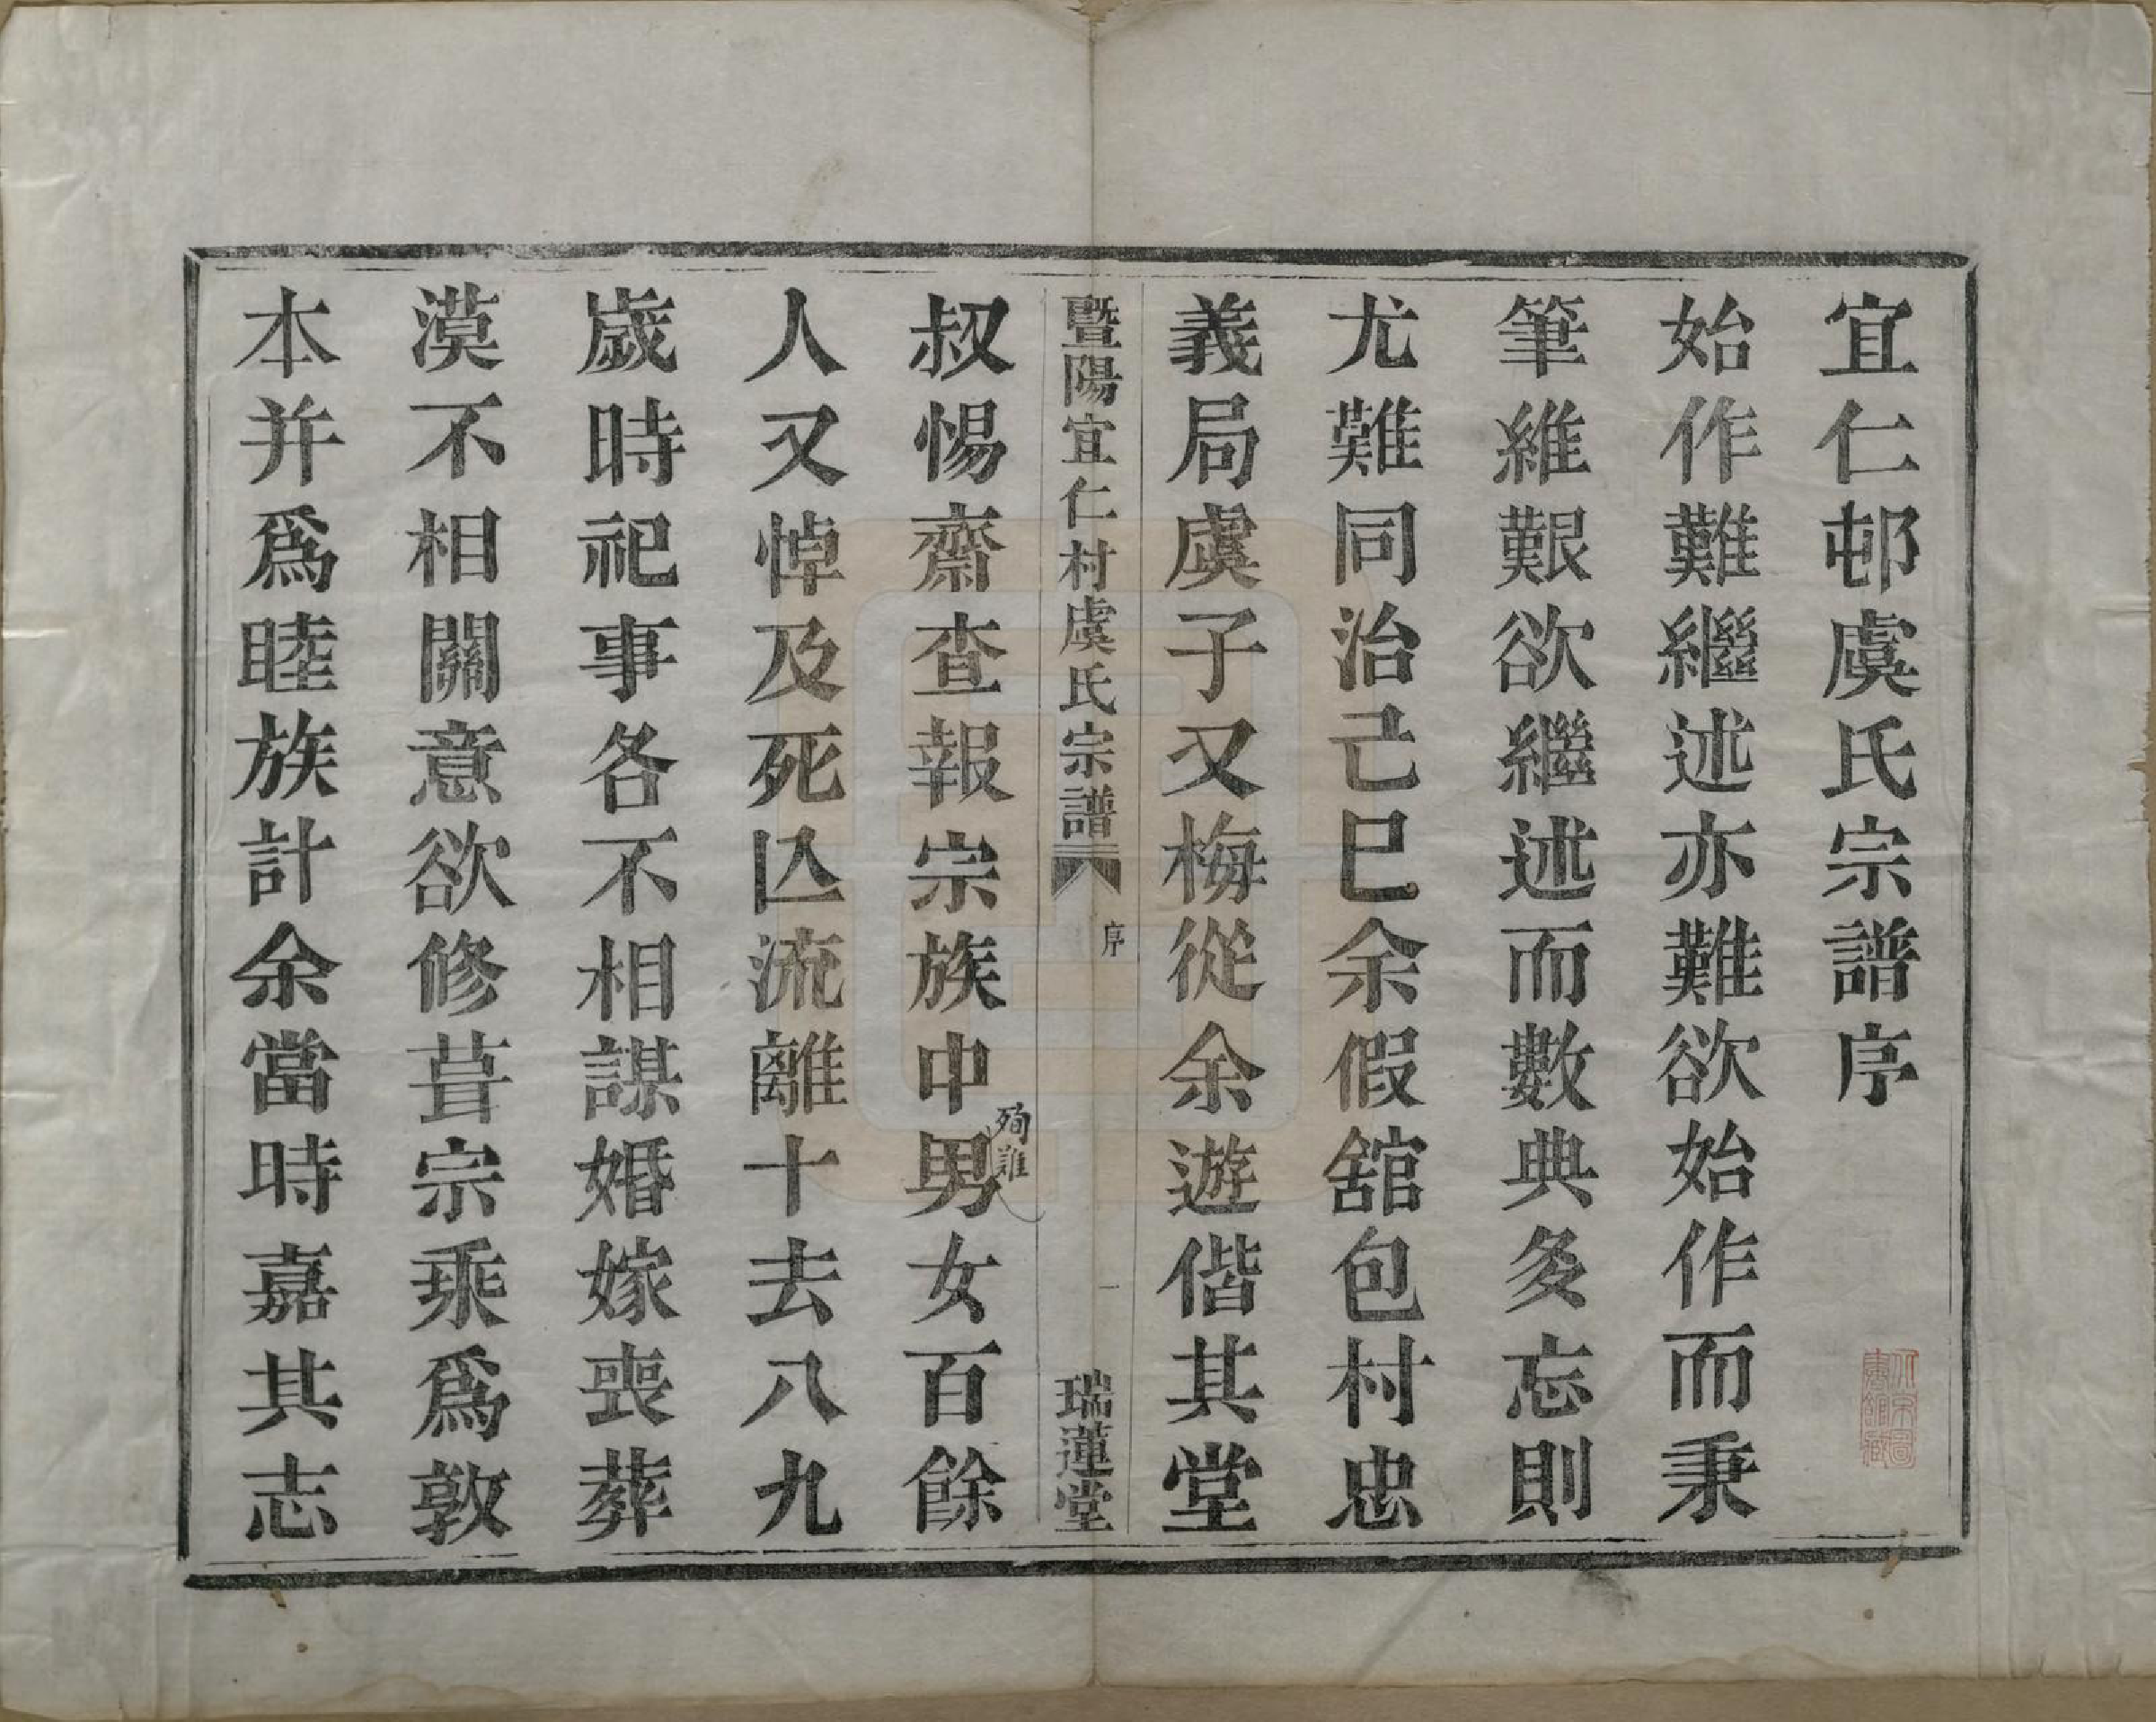 宜仁邨虞氏宗譜序
始作難繼述亦難欲始作而秉
筆維艱欲繼述而數典多忘則
尤難同治己巳余假舘包村忠
義局虞子又梅從余遊偕其堂
暨陽宜仁村虞氏宗譜
序
一
瑞蓮堂
叔惕齋查報宗族中男女百餘
殉難
人又悼及死亾流離十去八九
歲時祀事各不相謀婚嫁喪葬
漠不相關意欲修葺宗乘爲敦
本并爲睦族計余當時嘉其志